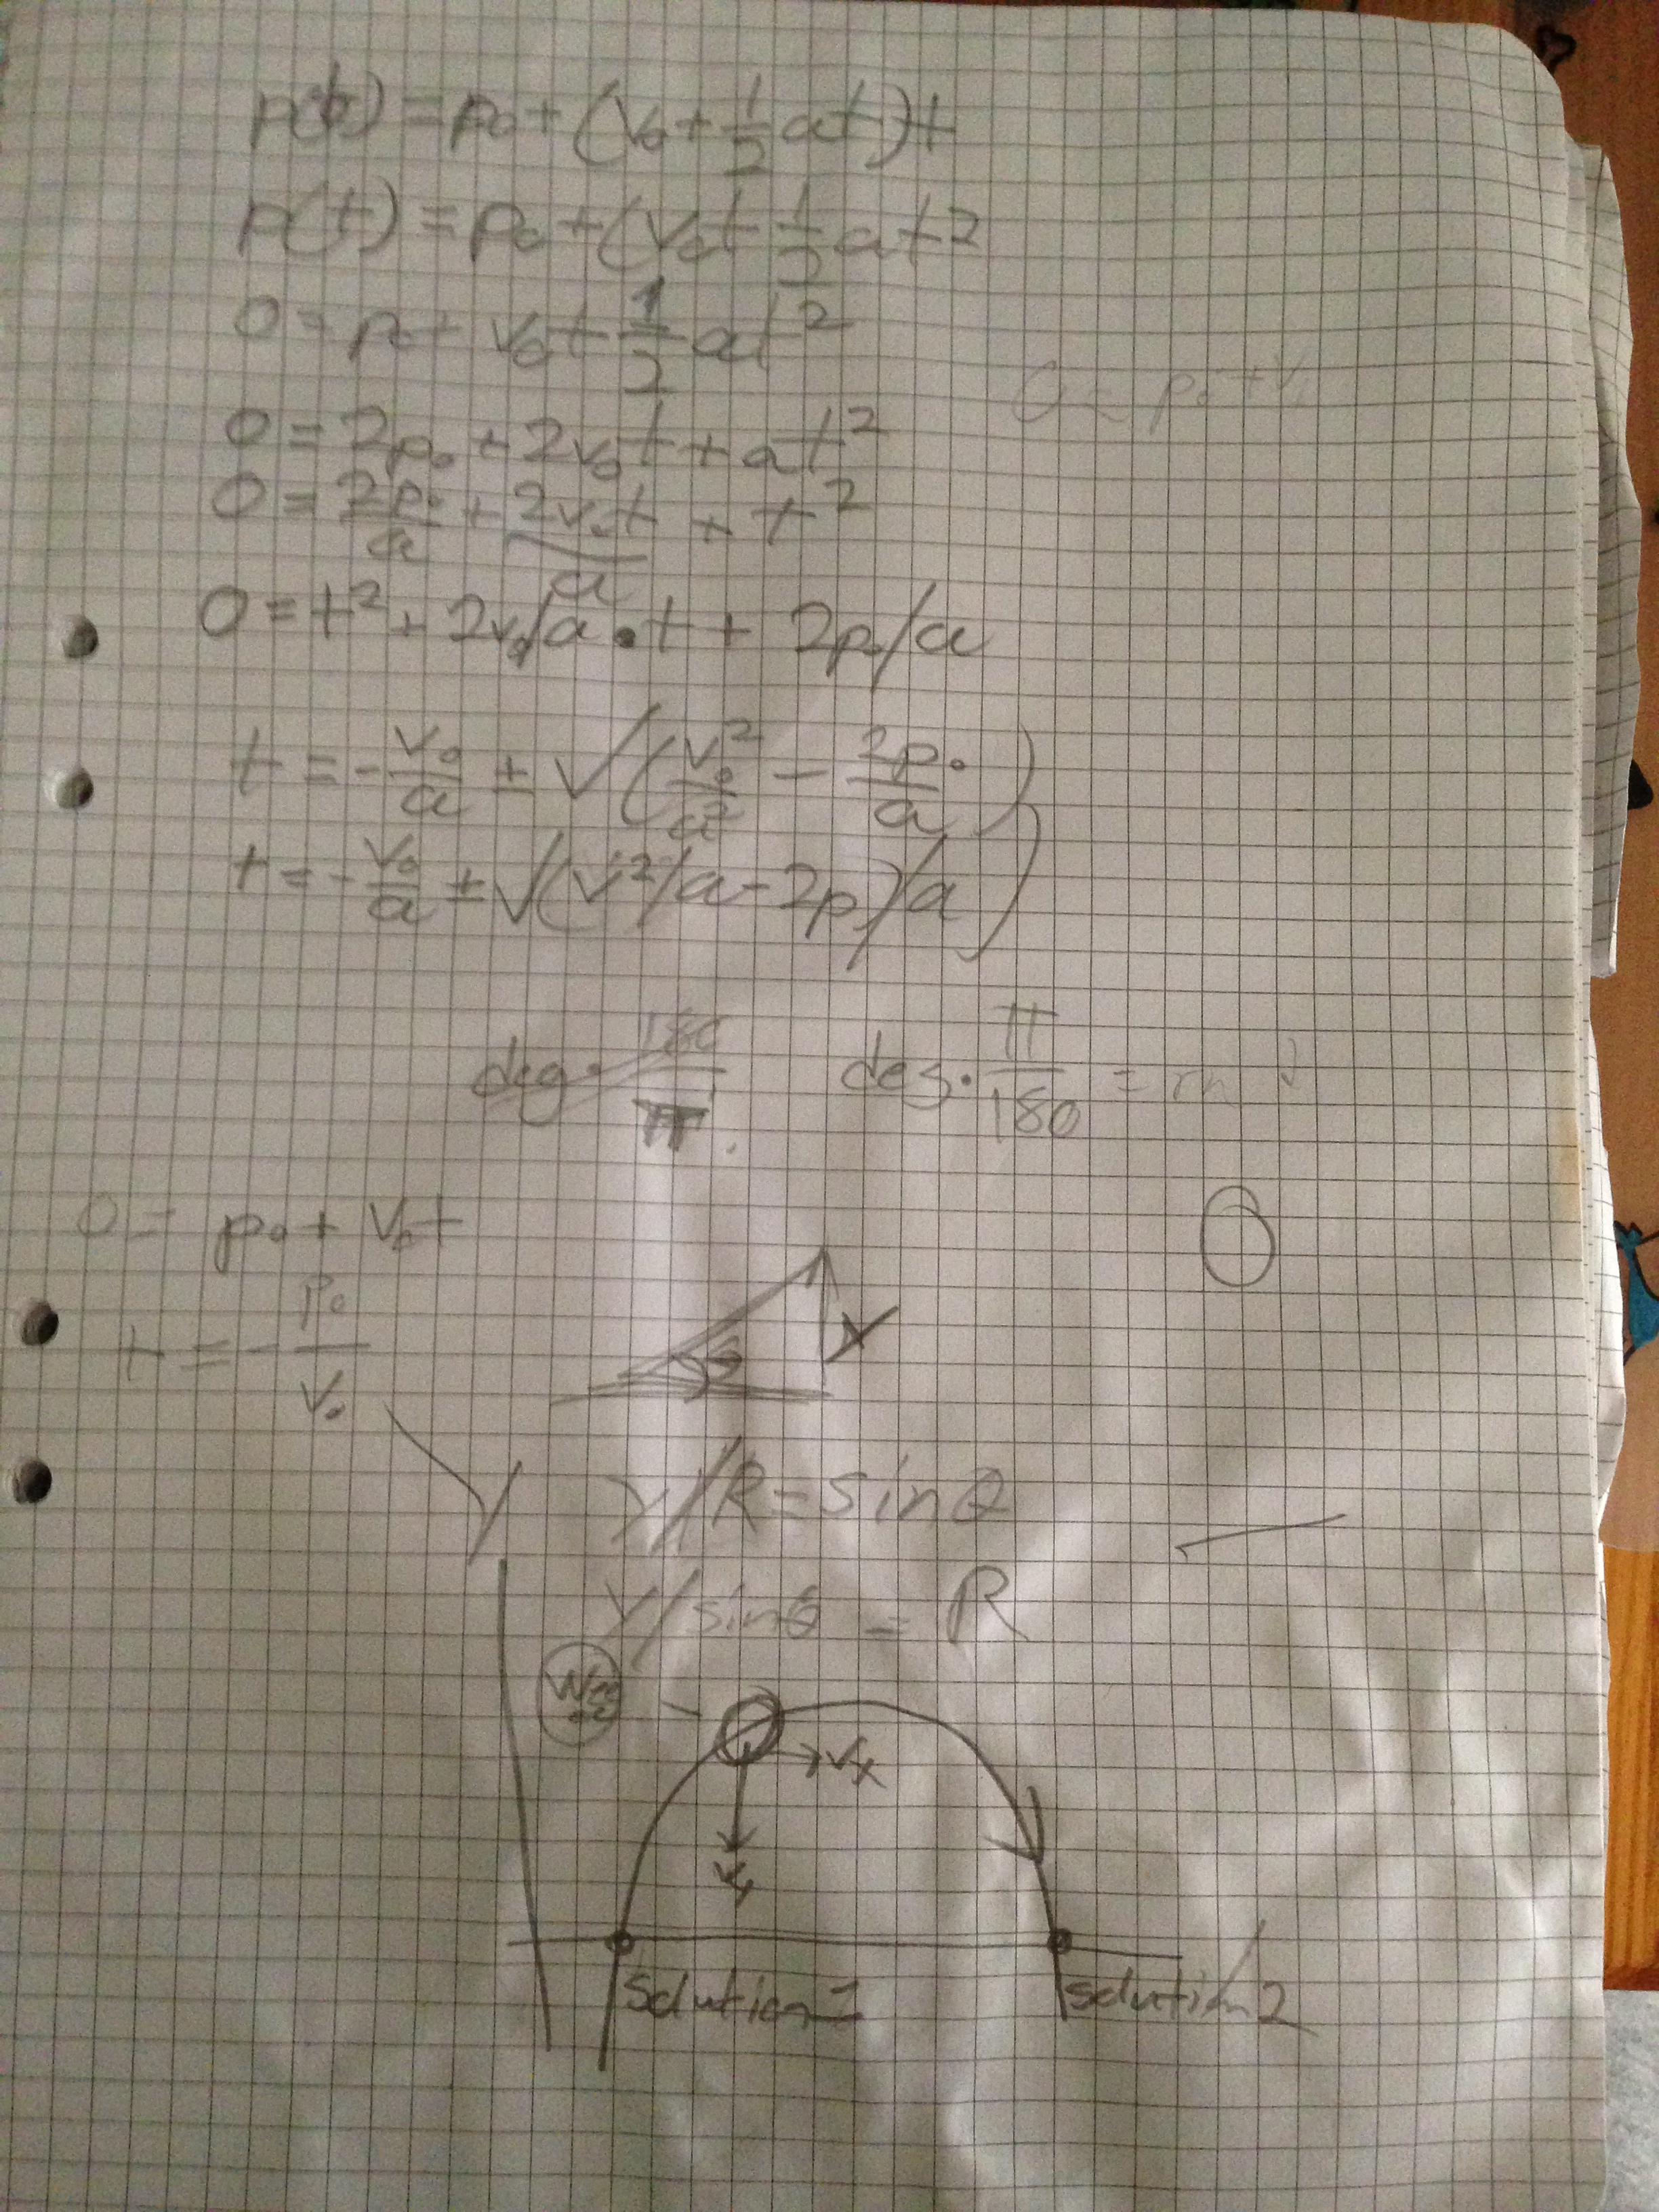 p(t) = p₀ + (v₀ + 1/2 at) t
p(t) = p₀ + (v₀t + 1/2 at²
0 = p₀ + v₀t + 1/2 at²
0 = p₀ + v
0 = 2p₀ + 2v₀t + at²
0 = 2p₀/a + 2v₀t/a + t²
0 = t² + 2v₀/a • t + 2p₀/a
t = - v₀/a ± √(v₀²/a² - 2p₀/a)
t = - v₀/a ± √((v²/a - 2p)/a)
deg · 180/π
deg · π/180 = rad
0 = p₀ + v₀t
t = - p₀/v₀
θ
Y
Y/R = sinθ
Y/sinθ = R
Vx
Vy
Solution 1
solution 2